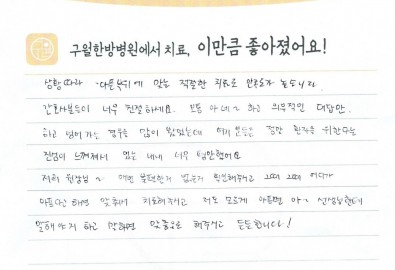 구월한방병원에서 치료, 이만큼 좋아졌어요!
상황따라 다른부위에 맞는 적절한 치료로 만족도가 높습니다.
간호사분들이 너무 친절하세요. 보통 아 네~ 하고 의무적인 대답만
하고 넘어가는 경우를 많이 봤었는데 여기 분들은 정말 환자를 위한다는
진심이 느껴져서 있는 내내 너무 편안했어요
저희 원장님은 매번 불편한거 없는지 확인해주시고 그때 그때 어디가
아프다 하면 맞춰서 치료해주시고 저도 모르게 아프면 아~ 선생님한테
말해야지 하고 말하면 맞춤으로 해주시고 든든합니다!